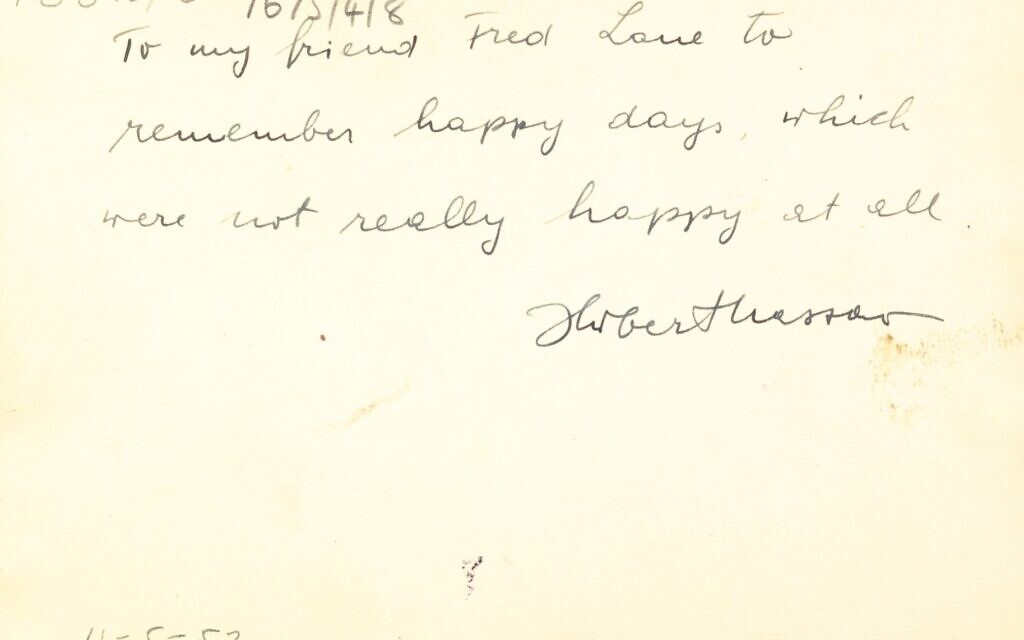 16/3/4/8
To my friend Fred Lane to
remember happy days, which
were not really happy at all.
11-5-52